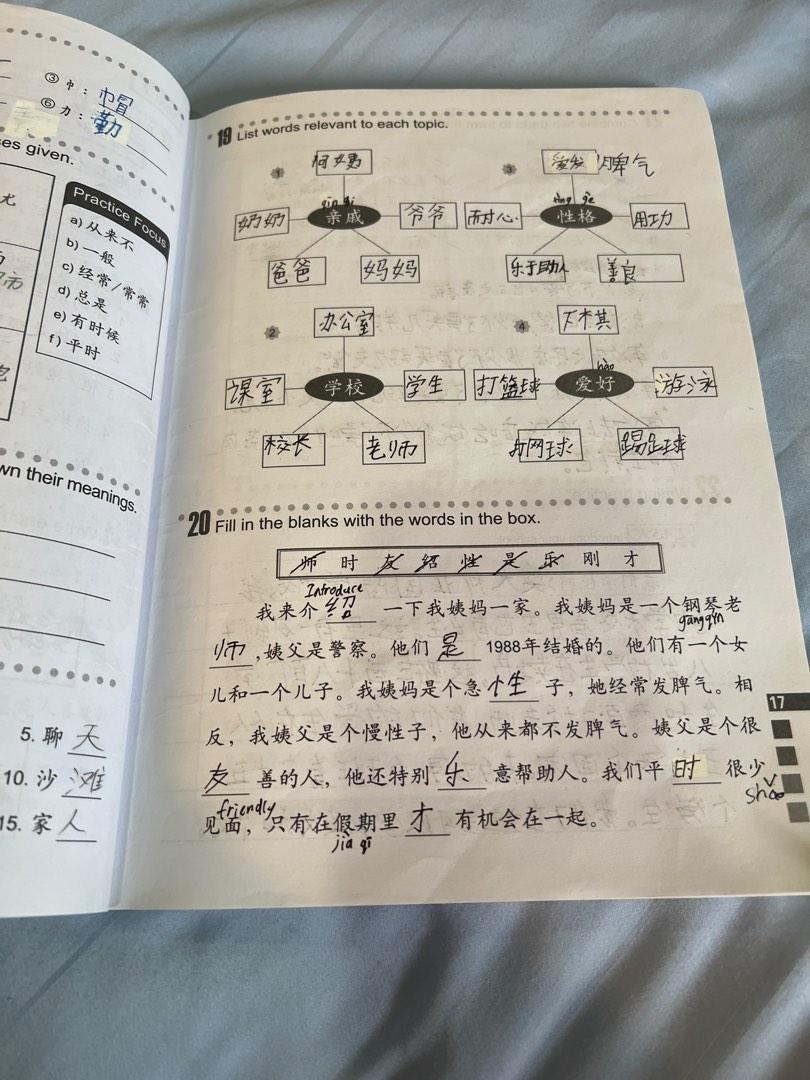 ③ 巾： 帽
⑥ 力： 勤
ses given.
Practice Focus
a) 从来不
b) 一般
c) 经常/常常
d) 总是
e) 有时候
f) 平时
wn their meanings.
5. 聊 天
10. 沙 滩
15. 家 人
19 List words relevant to each topic.
1
qin qi
亲戚
奶奶
爷爷
爸爸
妈妈
3
脾气
性格
耐心
用功
乐于助人
善良
2
办公室
学校
课室
学生
校长
老师
4
下木其
hào
爱好
打篮球
游泳
打网球
踢足球
20 Fill in the blanks with the words in the box.
师 时 友 绍 性 是 乐 刚 才
Introduce
我来介 绍 一下我姨妈一家。我姨妈是一个钢琴老
gāngqín
师 ,姨父是警察。他们 是 1988年结婚的。他们有一个女
儿和一个儿子。我姨妈是个急 性 子，她经常发脾气。相
反，我姨父是个慢性子，他从来都不发脾气。姨父是个很
友 善的人，他还特别 乐 意帮助人。我们平 时 很少
friendly
shao
见面，只有在假期里 才 有机会在一起。
jià qī
17